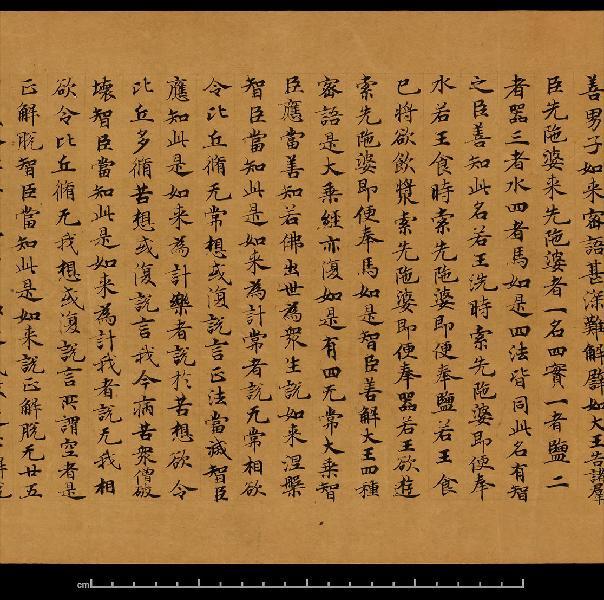 善男子如来密語甚深難解譬如大王告諸羣
臣先陁婆来先陁婆者一名四實一者鹽二
者器三者水四者馬如是四法皆同此名有智
之臣善知此名若王洗時索先陁婆即便奉
水若王食時索先陁婆即便奉鹽若王食
已將欲飲漿索先陁婆即便奉器若王欲遊
索先陁婆即便奉馬如是智臣善解大王四種
密語是大乗經亦復如是有四无常大乗智
臣應當善知若佛出世為衆生説如来涅槃
智臣當知此是如来為計常者説无常相欲
令比丘脩无常想或復説言正法當滅智臣
應知此是如来為計樂者説於苦想欲令
比丘多脩苦想或復説言我今病苦衆僧破
壊智臣當知此是如来為計我者説无我相
欲令比丘脩无我想或復説言所謂空者是
正解脱智臣當知此是如来説正解脱无廿五
cm